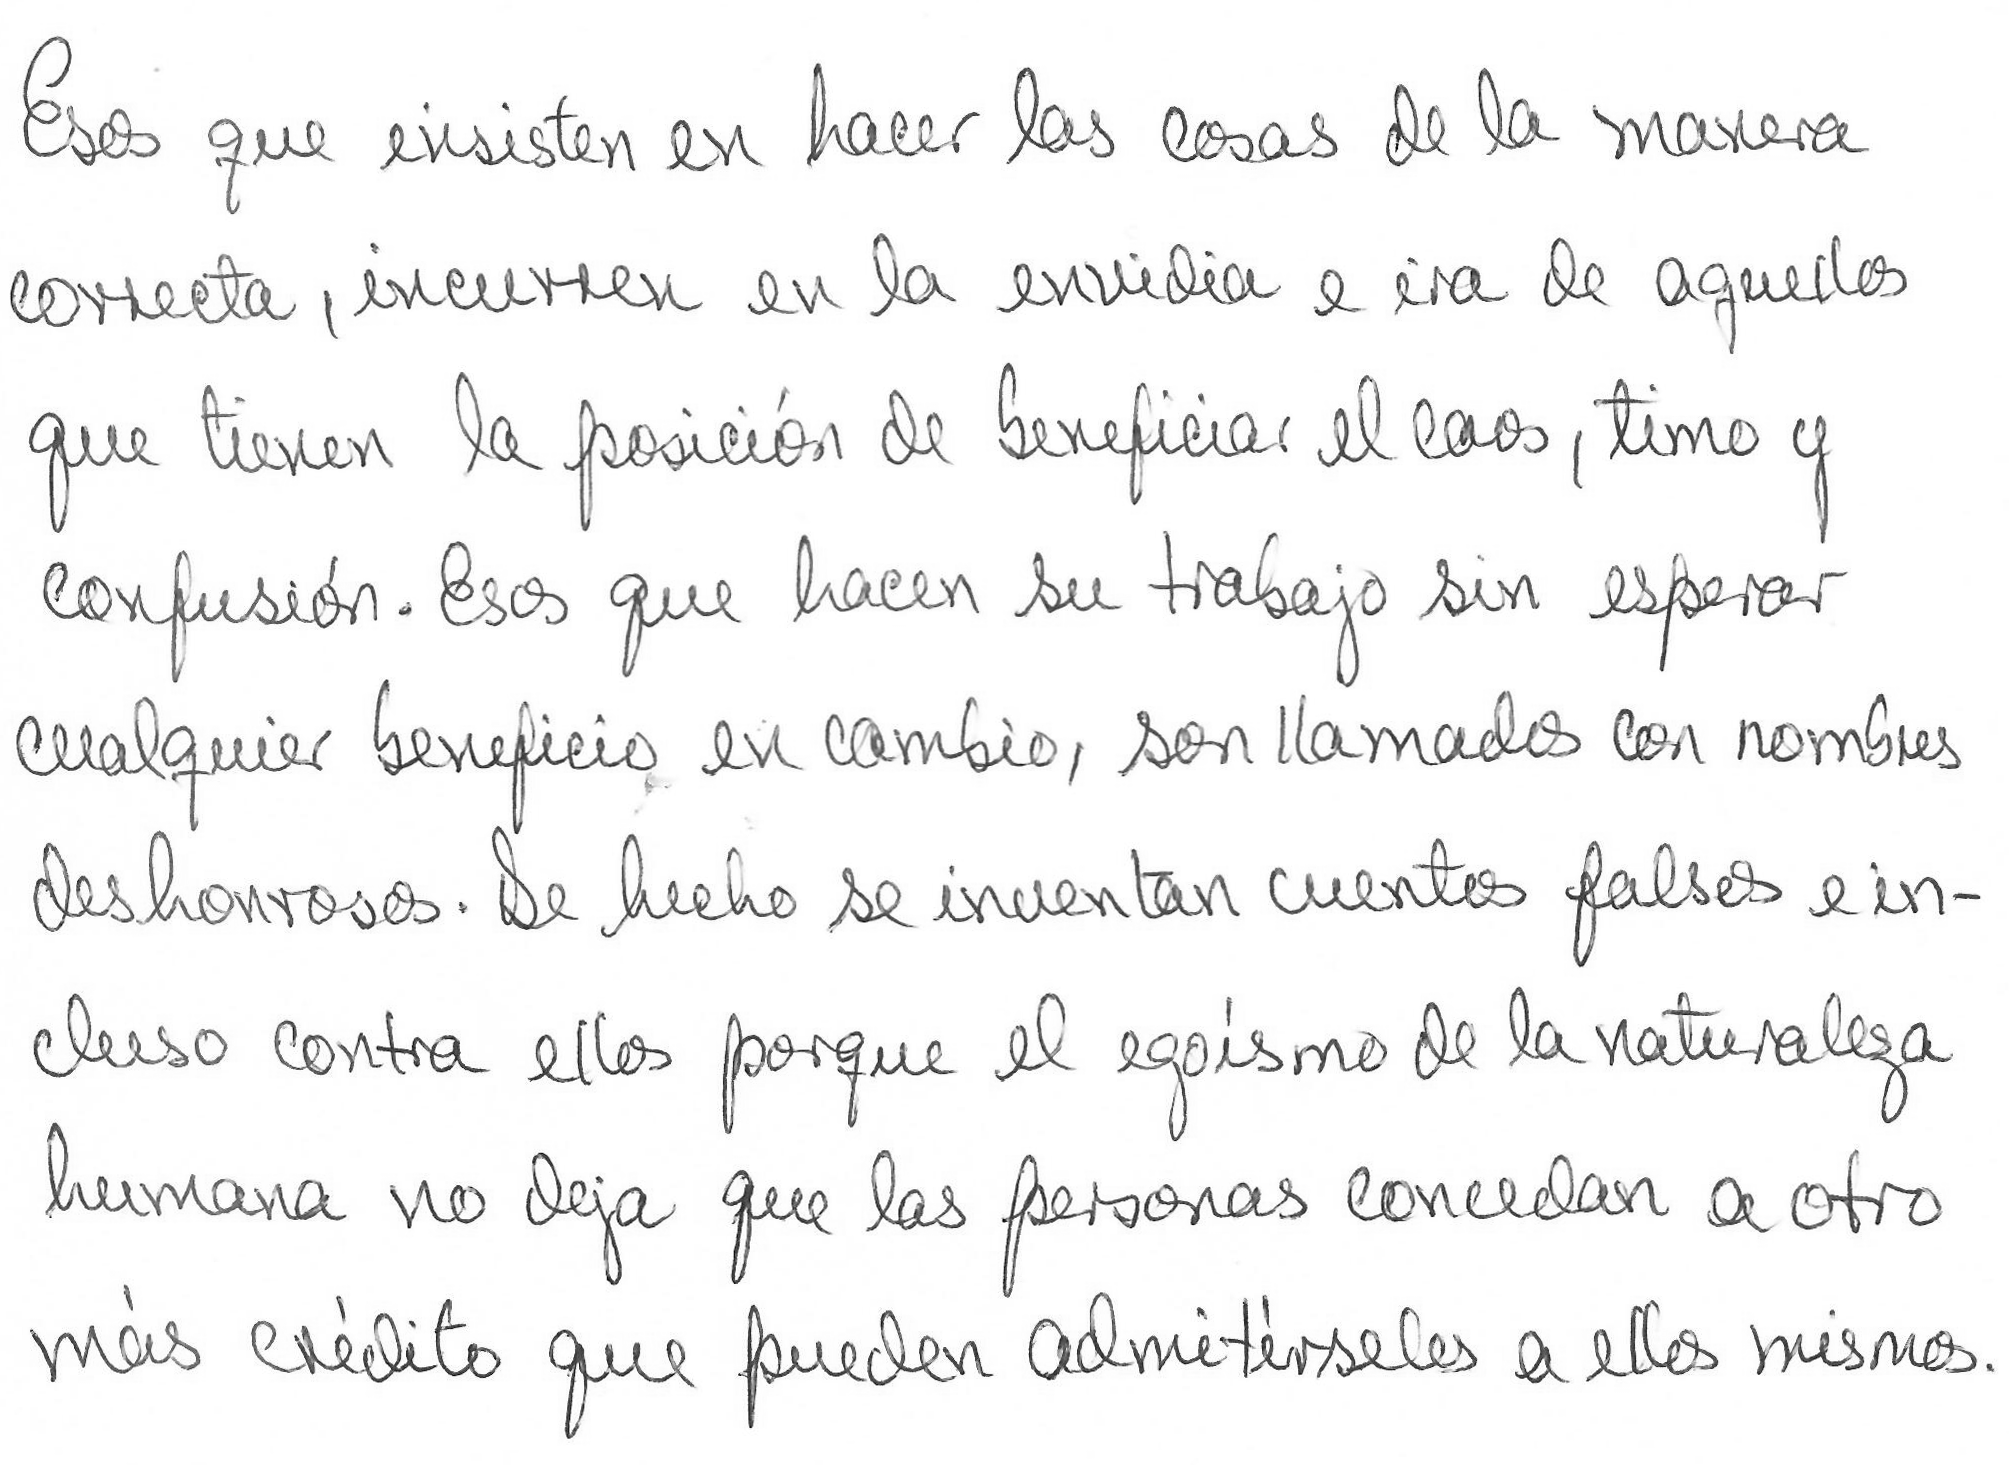 Esos que insisten en hacer las cosas de la manera
correcta, incurren en la envidia e ira de aquellos
que tienen la posición de beneficiar el caos, timo y
confusión. Esos que hacen su trabajo sin esperar
cualquier beneficio en cambio, son llamados con nombres
deshonrosos. De hecho se inventan cuentos falsos e in-
cluso contra ellos porque el egoísmo de la naturaleza
humana no deja que las personas concedan a otro
más crédito que pueden admitírseles a ellos mismos.